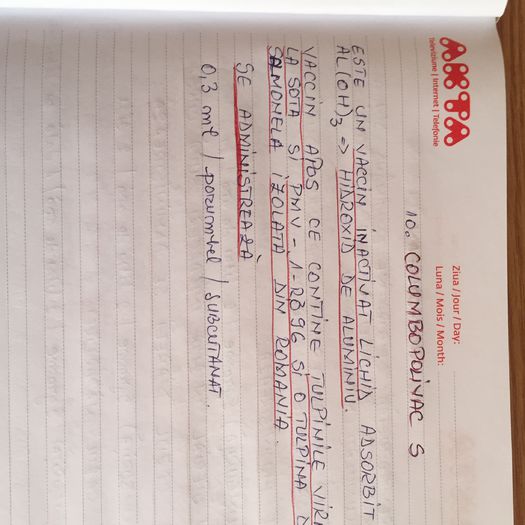 AKTA
Televiziune | Internet | Telefonie
Ziua / Jour / Day:
Luna / Mois / Month:
10. COLUMBOPOLIVAC S
ESTE UN VACCIN INACTIVAT LICHID ADSORBIT
AL(OH)3 => HIDROXID DE ALUMINIU.
VACCIN APOS CE CONTINE TULPINILE
LA SOTA SI PMV-1-R396 SI O TULPINA
SALMONELA IZOLATA DIN ROMANIA.
SE ADMINISTREAZĂ
0,3 ml / porumbel / SUBCUTANAT.